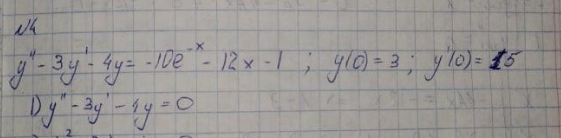 №4
y'' - 3y' - 4y = -10e^{-x} - 12x - 1 ; y(0) = 3 ; y'(0) = 5
1) y'' - 3y' - 4y = 0